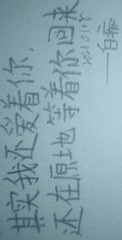 其实我还爱着你，
还在原地等着你回来
——白